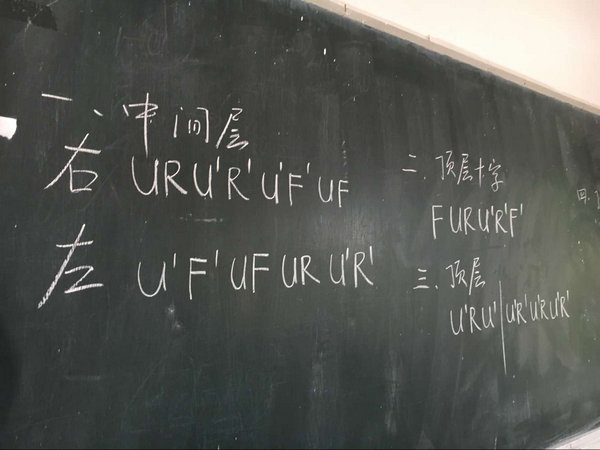 一、中间层
右 URU'R'U'F'UF
左 U'F'UFURU'R'
二.顶层十字
FURU'R'F'
三.顶层
U'RU'|U'R'U'RU'R'
四.